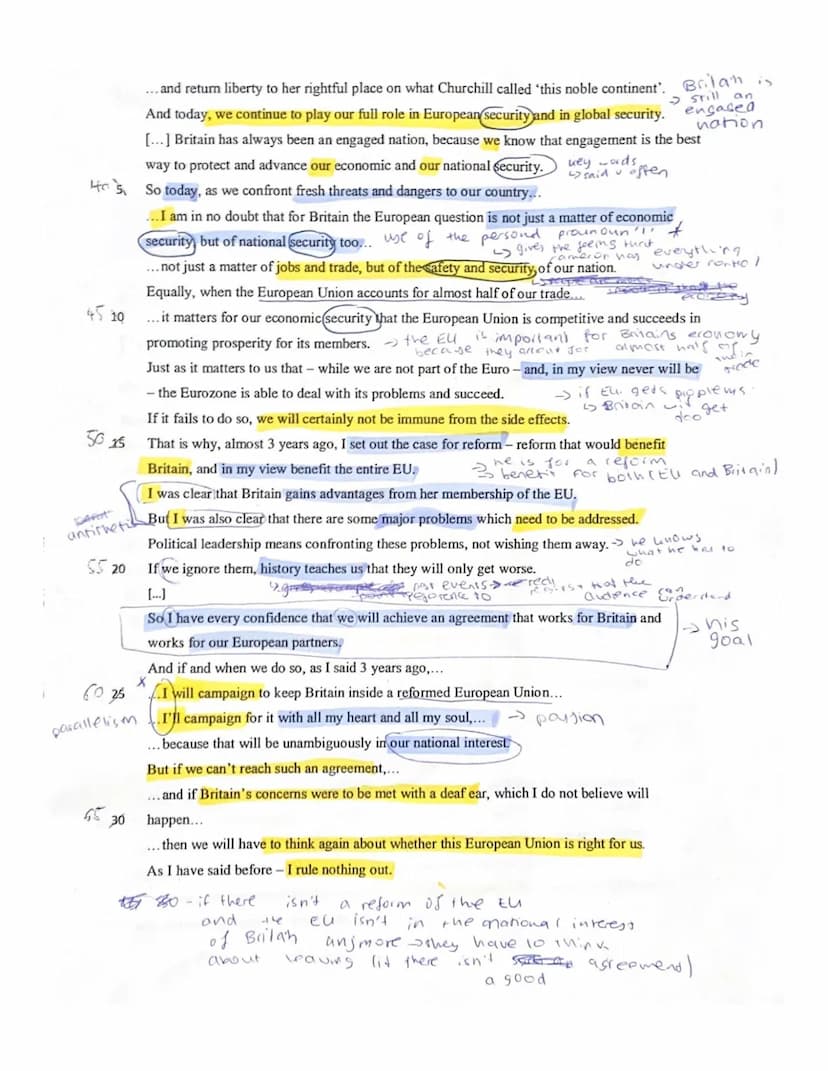 …and return liberty to her rightful place on what Churchill called ‘this noble continent’.
Britain is
→ still an
engaged
nation
And today, we continue to play our full role in European security and in global security.
[…] Britain has always been an engaged nation, because we know that engagement is the best
way to protect and advance our economic and our national security.
key words
↳ said v often
40 5
So today, as we confront fresh threats and dangers to our country…
…I am in no doubt that for Britain the European question is not just a matter of economic
security, but of national security too…
use of the personal pronoun "I" *
↳ gives the feeling that
cameron has everything
under control
…not just a matter of jobs and trade, but of the safety and security of our nation.
Equally, when the European Union accounts for almost half of our trade…
45 10
…it matters for our economic security that the European Union is competitive and succeeds in
promoting prosperity for its members.
→ the EU is important for Britains economy
because they account for almost half of
their trade
Just as it matters to us that – while we are not part of the Euro – and, in my view never will be
– the Eurozone is able to deal with its problems and succeed.
→ if EU gets problems
↳ Britain will get
too
If it fails to do so, we will certainly not be immune from the side effects.
50 15
That is why, almost 3 years ago, I set out the case for reform – reform that would benefit
Britain, and in my view benefit the entire EU.
→ he is for a reform
→ benefit for both (EU and Britain)
I was clear that Britain gains advantages from her membership of the EU.
antithetic
But I was also clear that there are some major problems which need to be addressed.
Political leadership means confronting these problems, not wishing them away.
→ he knows
what he has to
do
55 20
If we ignore them, history teaches us that they will only get worse.
[...]
↳ past events →
reference to
that the
audience can
understand
So I have every confidence that we will achieve an agreement that works for Britain and
works for our European partners.
→ his
goal
And if and when we do so, as I said 3 years ago,…
60 25
x
…I will campaign to keep Britain inside a reformed European Union…
parallelism
…I’ll campaign for it with all my heart and all my soul,…
→ passion
…because that will be unambiguously in our national interest.
But if we can’t reach such an agreement,…
…and if Britain’s concerns were to be met with a deaf ear, which I do not believe will
65 30
happen…
…then we will have to think again about whether this European Union is right for us.
As I have said before – I rule nothing out.
30 - if there isn't a reform of the EU
and the EU isn't in the national interess
of Britain anymore → they have to think
about leaving (if there isn't agreement)
a good